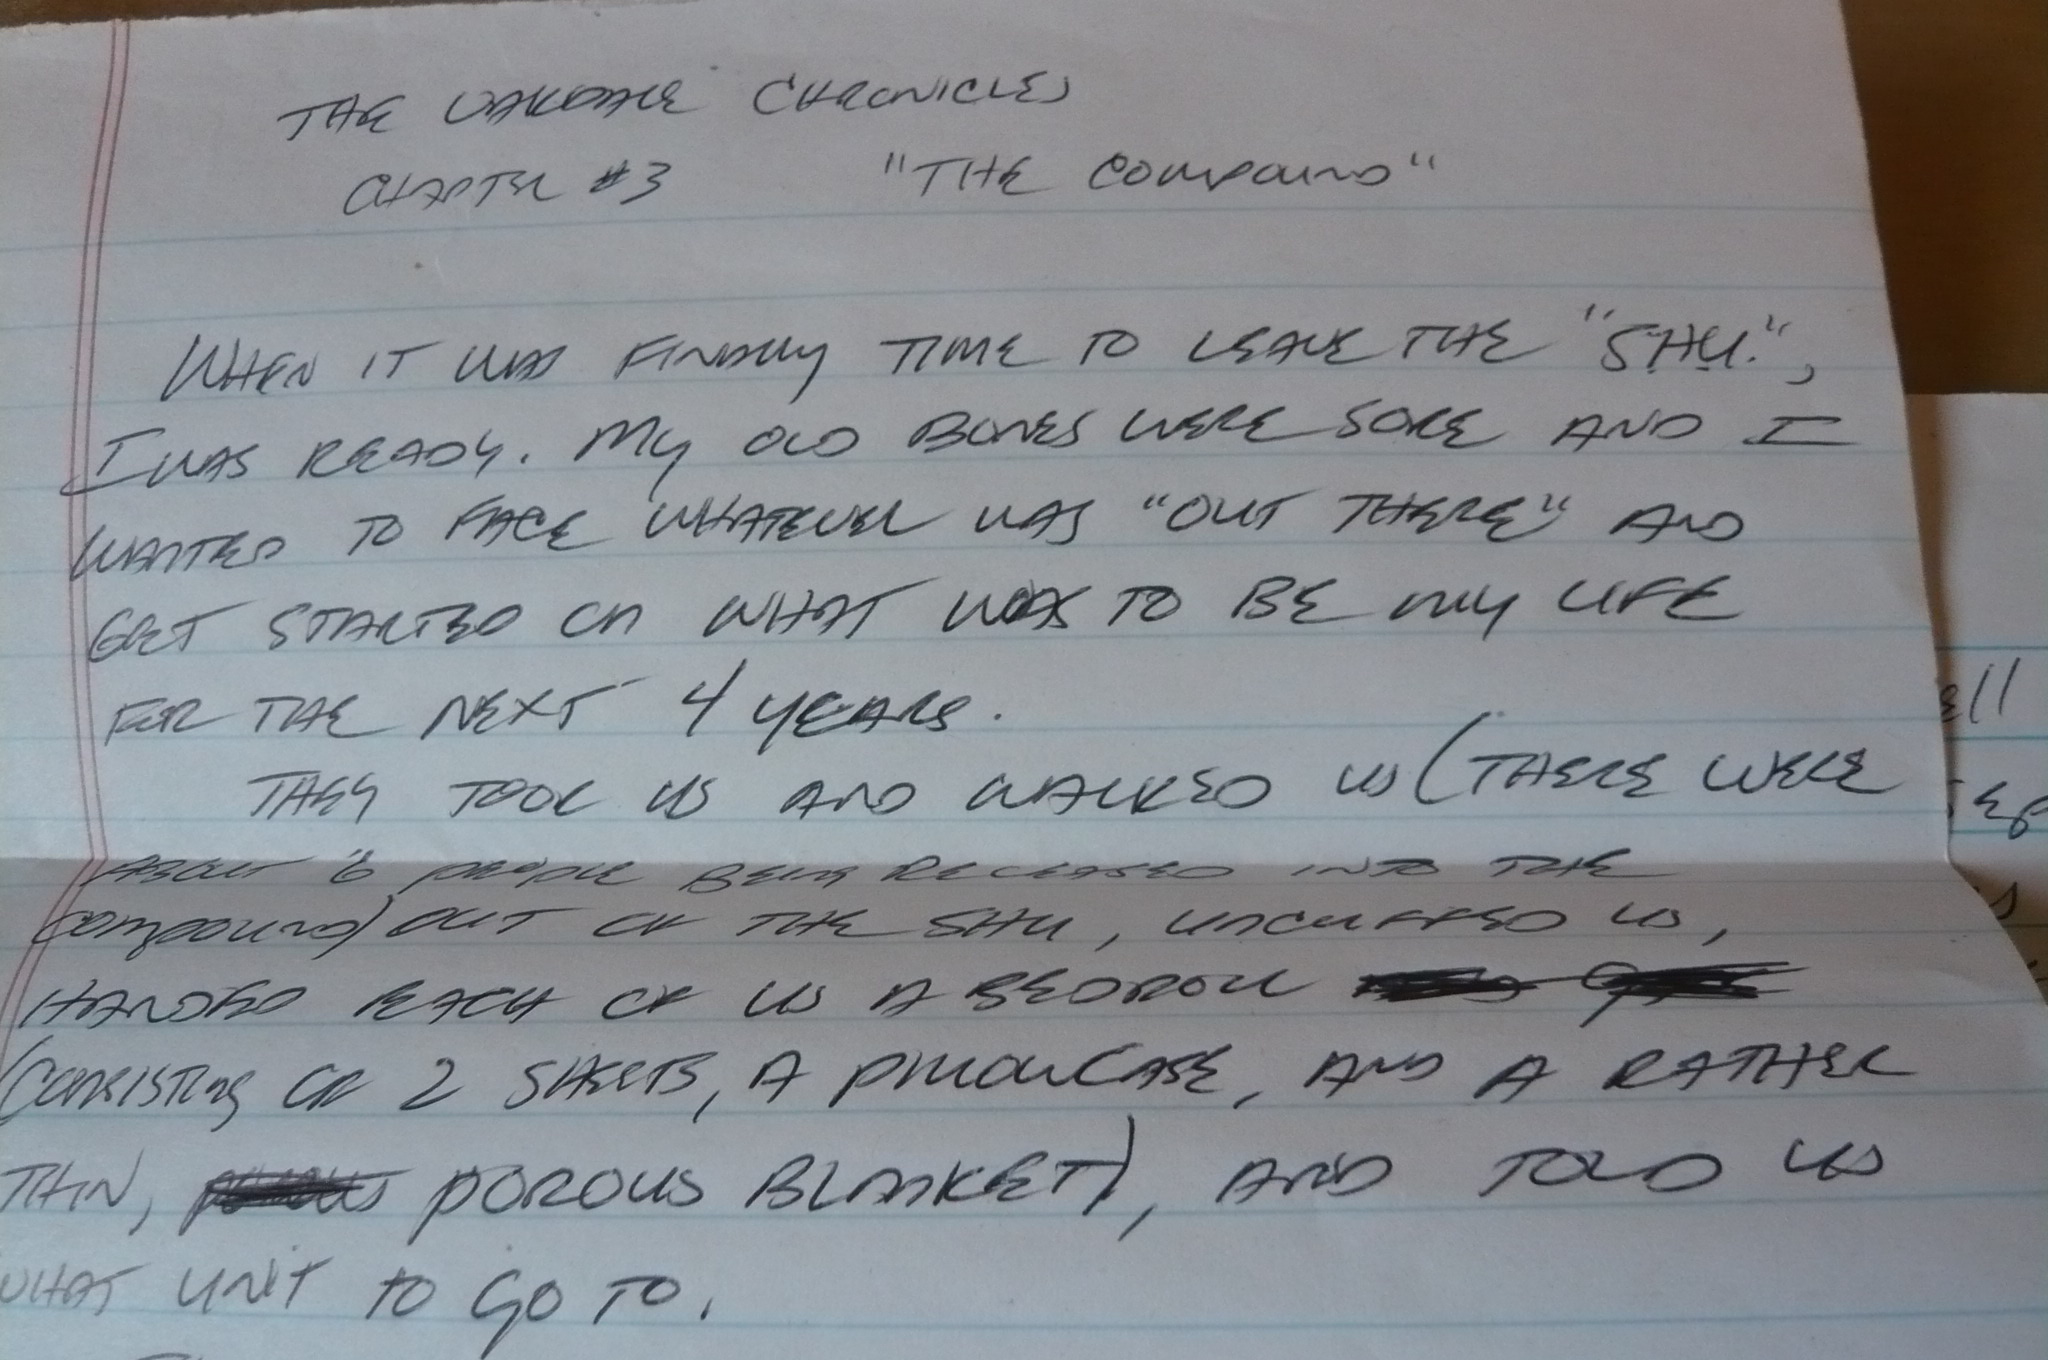 THE OAKDALE CHRONICLES
CHAPTER #3 "THE COMPOUND"
WHEN IT WAS FINALLY TIME TO LEAVE THE "S.H.U.",
I WAS READY. MY OLD BONES WERE SORE AND I
WANTED TO FACE WHATEVER WAS "OUT THERE" AND
GET STARTED ON WHAT WAS TO BE MY LIFE
FOR THE NEXT 4 YEARS.
THEY TOOK US AND WALKED US (THERE WERE
ABOUT 6 PEOPLE BEING RELEASED INTO THE
COMPOUND) OUT OF THE SHU, UNCUFFED US,
HANDED EACH OF US A BEDROLL
(CONSISTING OF 2 SHEETS, A PILLOWCASE, AND A RATHER
THIN, POROUS BLANKET), AND TOLD US
WHAT UNIT TO GO TO.